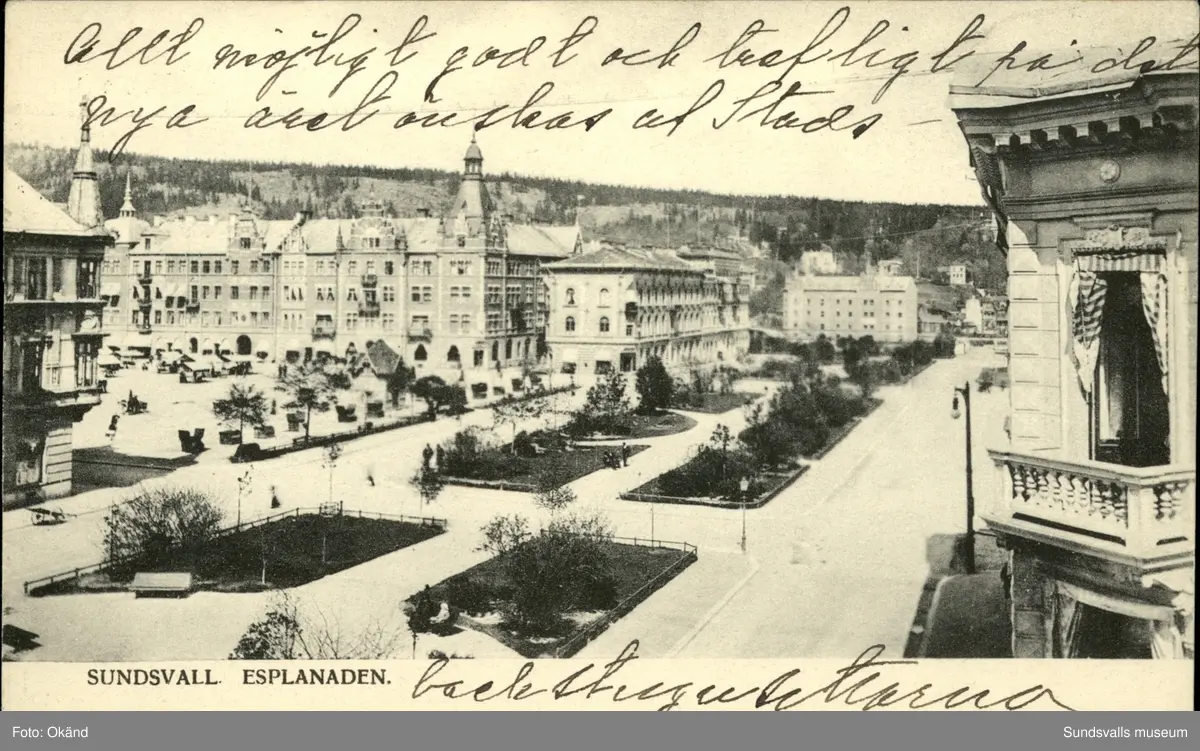 Allt möjligt godt och trefligt på det
nya året önskas af Stads –
SUNDSVALL. ESPLANADEN.
backstugusittarna
Foto: Okänd
Sundsvalls museum